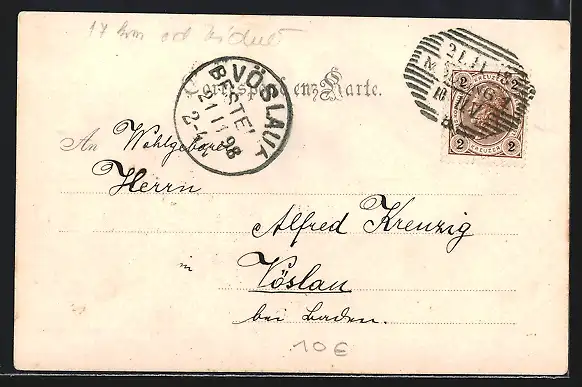 Correspondenz-Karte.
VÖSLAU
BESTE
21 11 98
21.11.98
KREUZER
2 2
2 2
KREUZER
An Wohlgeboren
Herrn
Alfred Kreuzig
in Vöslau
bei Baden.
10 €